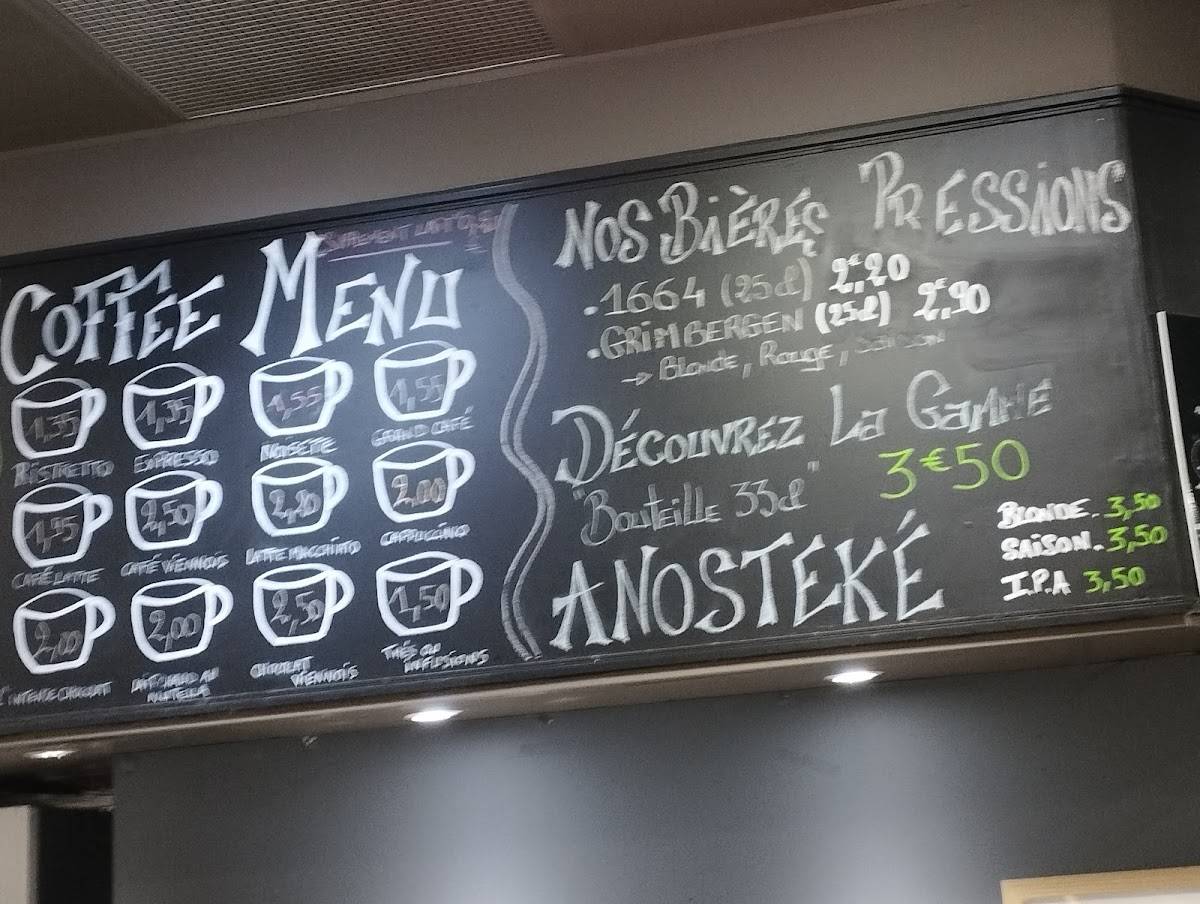 COFFEE MENU
1,35 1,35 1,55 1,55
RISTRETTO EXPRESSO NOISETTE GRAND CAFÉ
1,95 2,50 2,20 2,00
CAFÉ LATTE CAFÉ VIENNOIS LATTE MACCHIATO CAPPUCCINO
2,00 2,00 2,50 1,50
L'INTENSE CHOCOLAT LAIT CHAUD AU NUTELLA CHOCOLAT VIENNOIS THÉS OU INFUSIONS
NOS BIÈRES PRESSIONS
.1664 (25cl) 2€,20
.GRIMBERGEN (25cl) 2€,90
→ Blonde, Rouge, Saison
DÉCOUVREZ LA GAMME
"Bouteille 33cl" 3€50
ANOSTEKÉ
BLONDE. 3,50
SAISON. 3,50
I.P.A 3,50